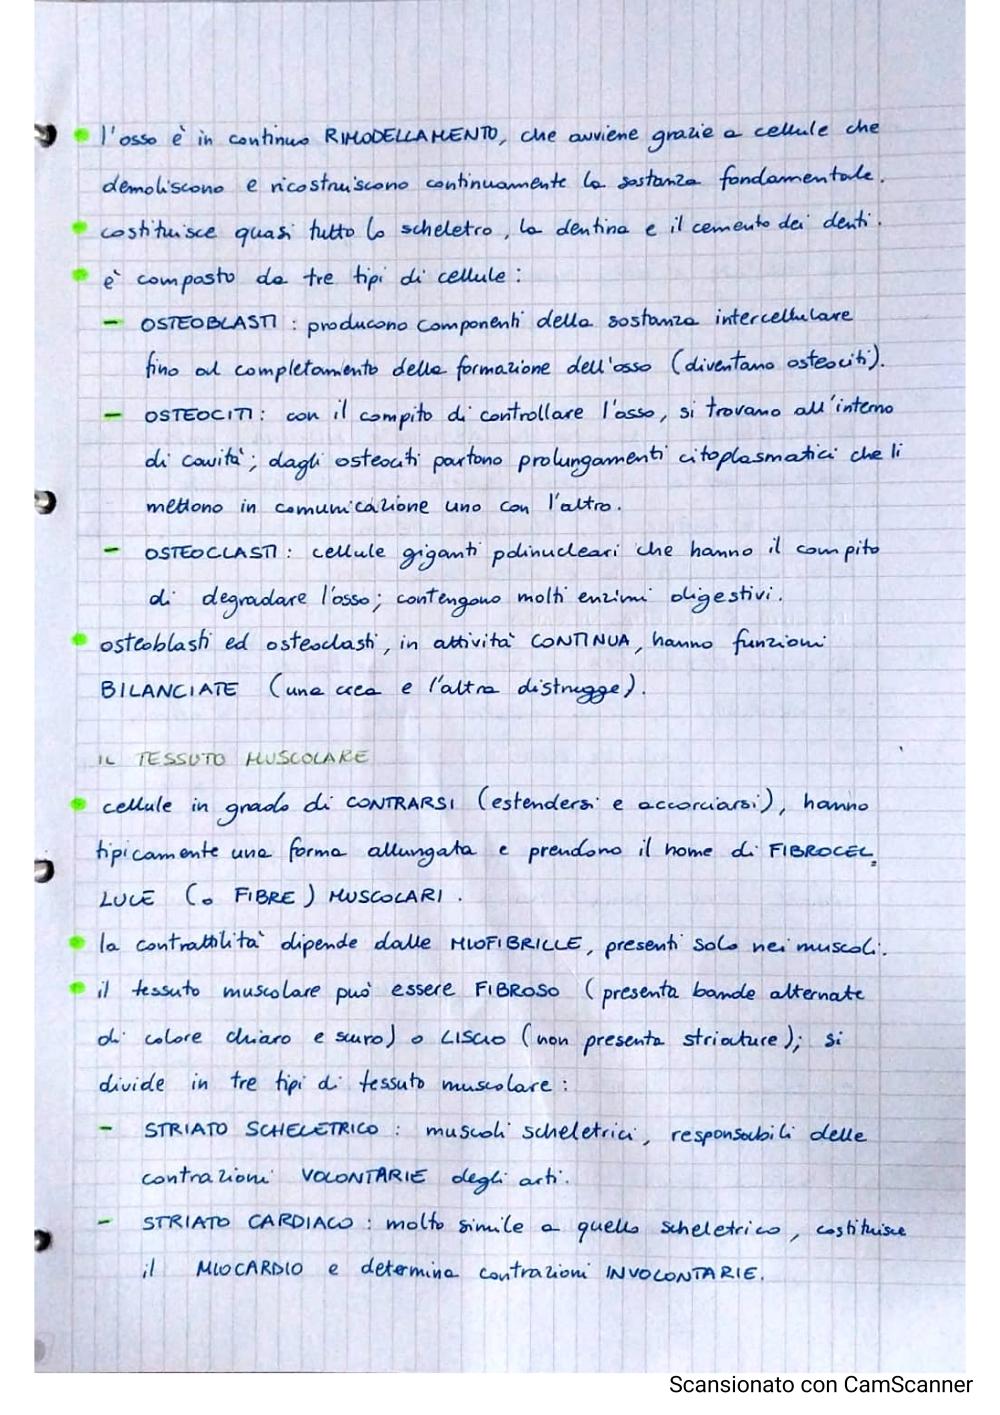 l'osso è in continuo RIMODELLAMENTO, che avviene grazie a cellule che
demoliscono e ricostruiscono continuamente la sostanza fondamentale.
costituisce quasi tutto lo scheletro, la dentina e il cemento dei denti.
è composto da tre tipi di cellule:
- OSTEOBLASTI: producono componenti della sostanza intercellulare
fino al completamento della formazione dell'osso (diventano osteociti).
- OSTEOCITI: con il compito di controllare l'osso, si trovano all'interno
di cavità; dagli osteociti partono prolungamenti citoplasmatici che li
mettono in comunicazione uno con l'altro.
- OSTEOCLASTI: cellule giganti polinucleari che hanno il compito
di degradare l'osso; contengono molti enzimi digestivi.
osteoblasti ed osteoclasti, in attività CONTINUA, hanno funzioni
BILANCIATE (una crea e l'altra distrugge).
IL TESSUTO MUSCOLARE
cellule in grado di CONTRARSI (estendersi e accorciarsi), hanno
tipicamente una forma allungata e prendono il nome di FIBROCEL
LULE (o FIBRE) MUSCOLARI.
la contrattilità dipende dalle MIOFIBRILLE, presenti solo nei muscoli.
il tessuto muscolare può essere FIBROSO (presenta bande alternate
di colore chiaro e scuro) o LISCIO (non presenta striature); si
divide in tre tipi di tessuto muscolare:
- STRIATO SCHELETRICO: muscoli scheletrici, responsabili delle
contrazioni VOLONTARIE degli arti.
- STRIATO CARDIACO: molto simile a quello scheletrico, costituisce
il MIOCARDIO e determina contrazioni INVOLONTARIE.
Scansionato con CamScanner